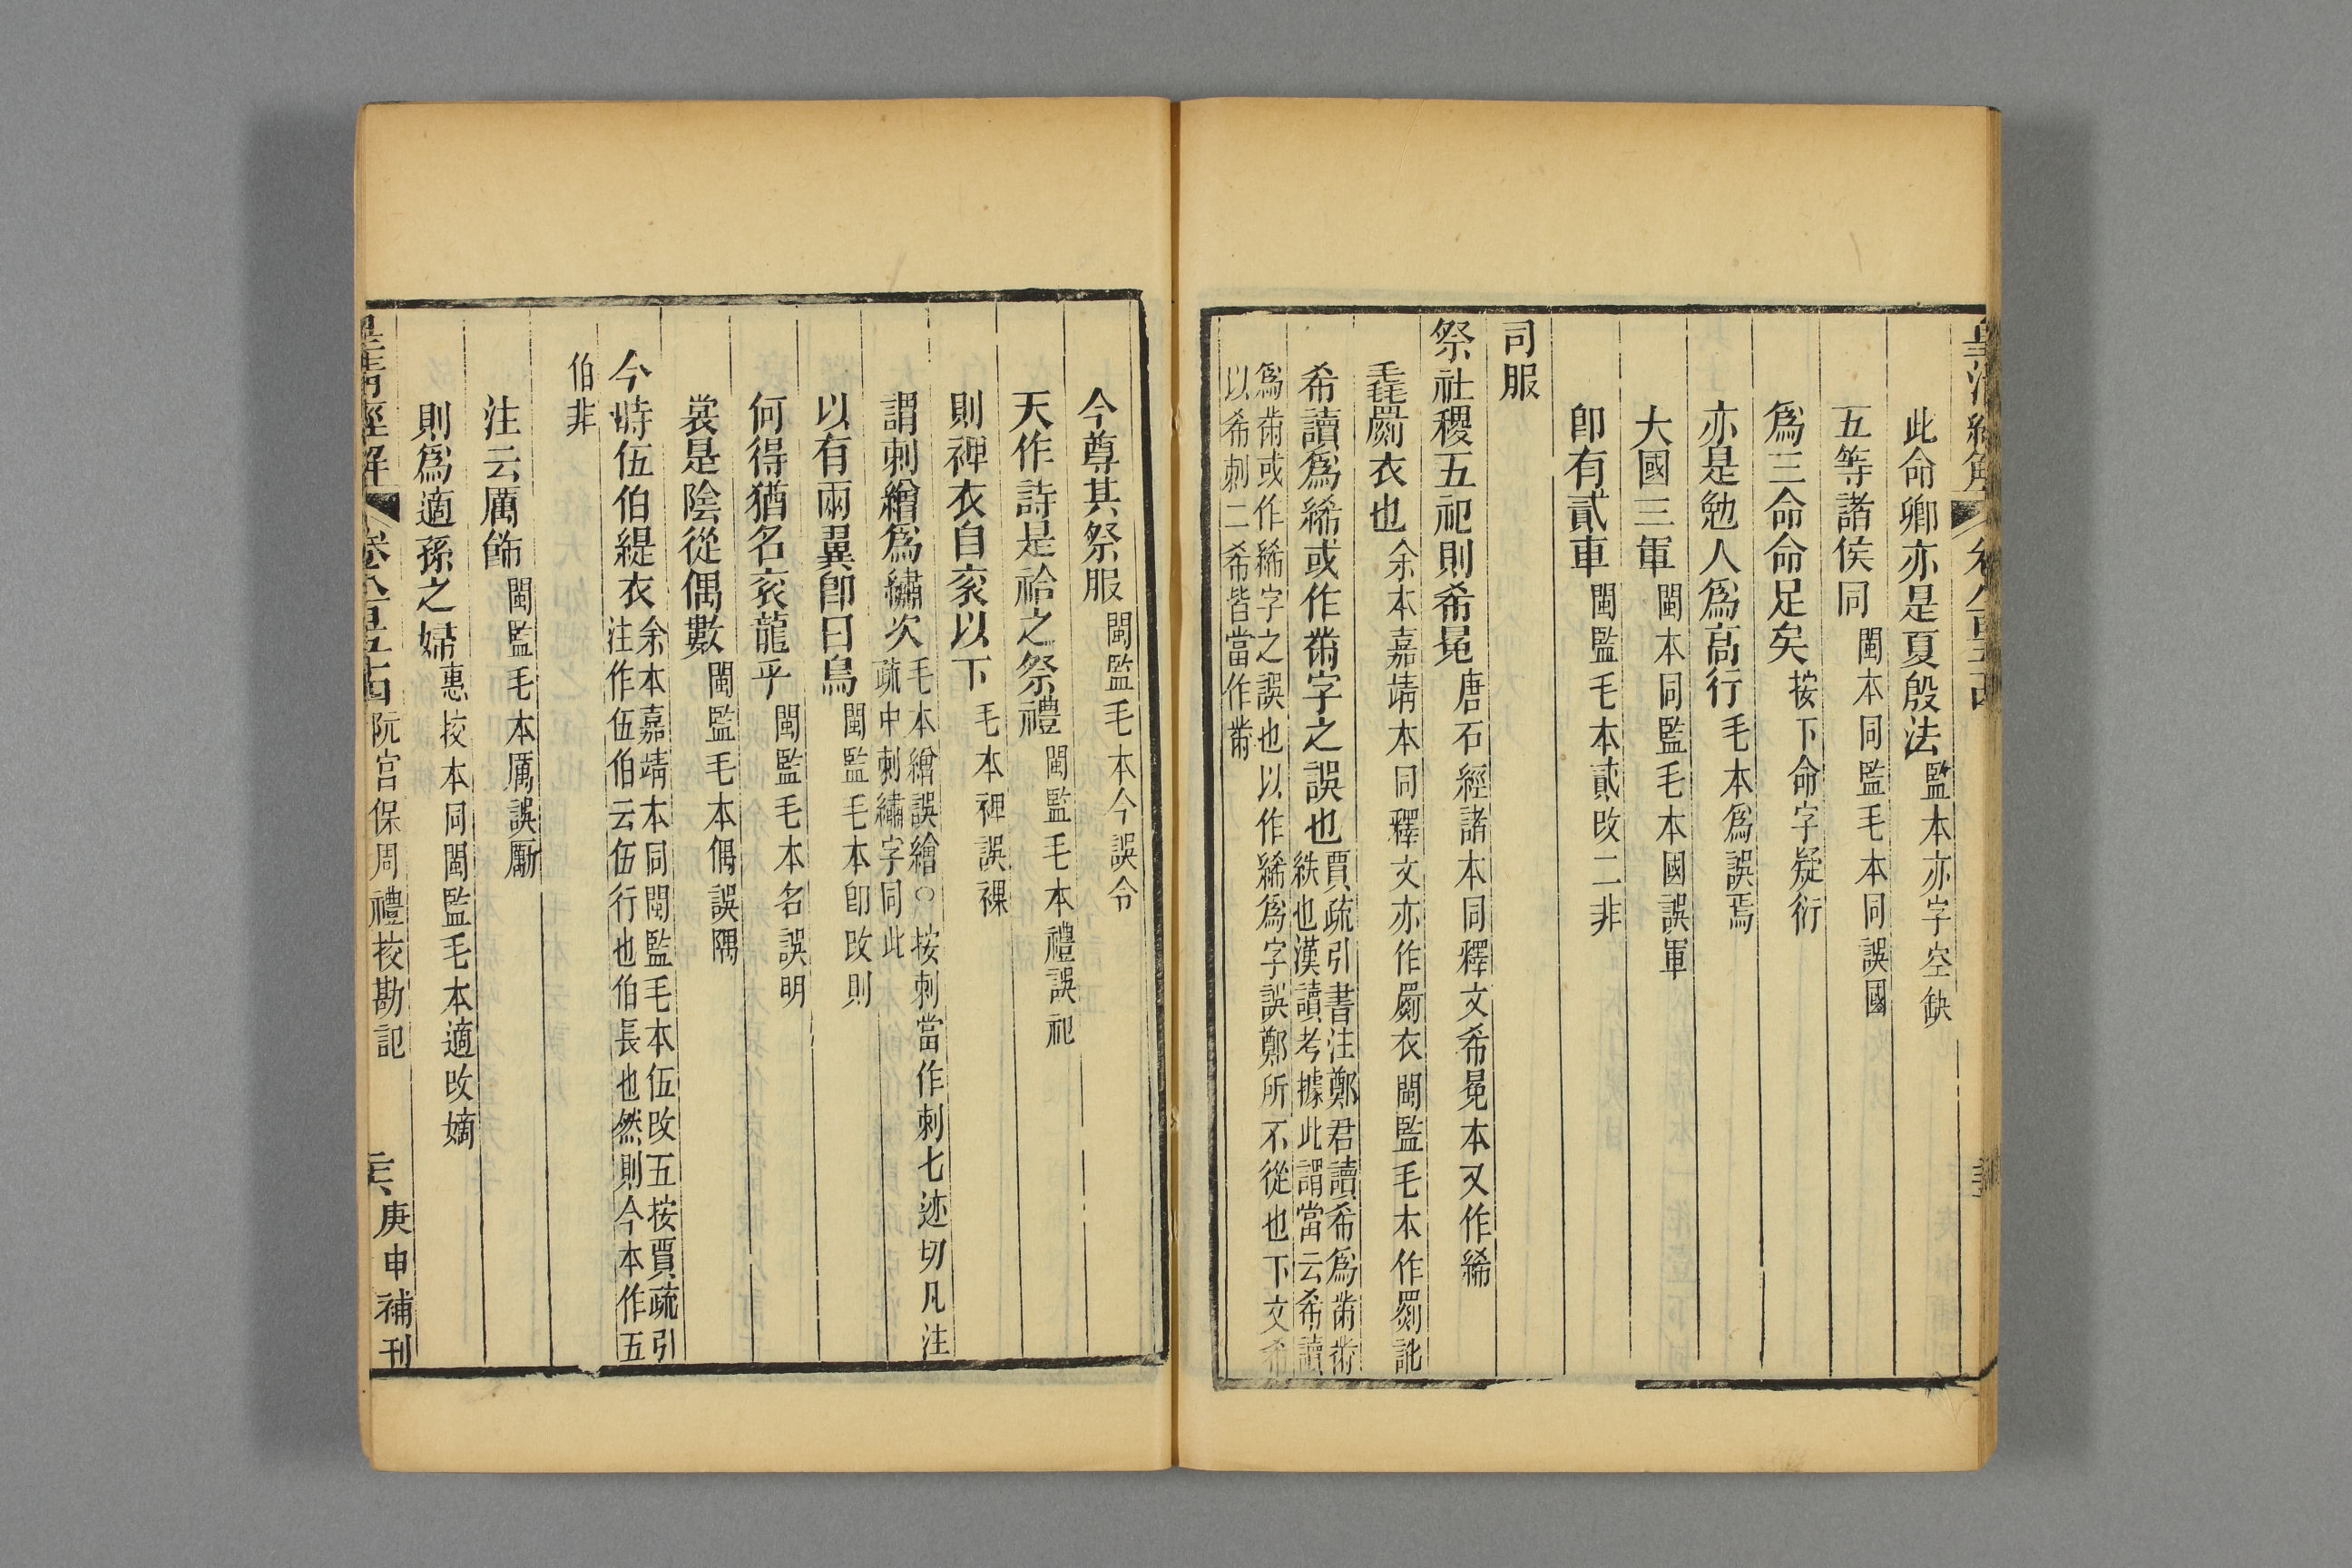 此命卿亦是夏殷法監本亦字空缺
五等諸侯同閩本同監毛本同誤國
爲三命命足矣按下命字疑衍
亦是勉人爲高行毛本爲誤焉
大國三軍閩本同監毛本國誤軍
卽有貳車閩監毛本貳改二非
司服
祭社稷五祀則希冕唐石經諸本同釋文希冕本又作絺
毳罽衣也余本嘉靖本同釋文亦作罽衣閩監毛本作罽訛
希讀爲絺或作黹字之誤也賈疏引書注鄭君讀希爲黹黹
紩也漢讀考據此謂當云希讀
爲黹或作絺字之誤也以作絺爲字誤鄭所不從也下文希
以希刺二希皆當作黹
今尊其祭服閩監毛本今誤令
天作詩是祫之祭禮閩監毛本禮誤祀
則裨衣自衮以下毛本裨誤裸
謂刺繒爲繡次毛本繒誤繪○按刺當作刺七迹切凡注
疏中刺繡字同此
以有兩翼卽曰鳥閩監毛本卽改則
何得猶名衮龍乎閩監毛本名誤明
裳是陰從偶數閩監毛本偶誤隅
今時伍伯緹衣余本嘉靖本同閩監毛本伍改五按賈疏引
注作伍伯云伍行也伯長也然則今本作五
伯非
注云厲飾閩監毛本厲誤勵
則爲適孫之婦惠挍本同閩監毛本適改嫡
皇淸經解 卷八百五十四 阮宮保周禮挍勘記 庚申補刊